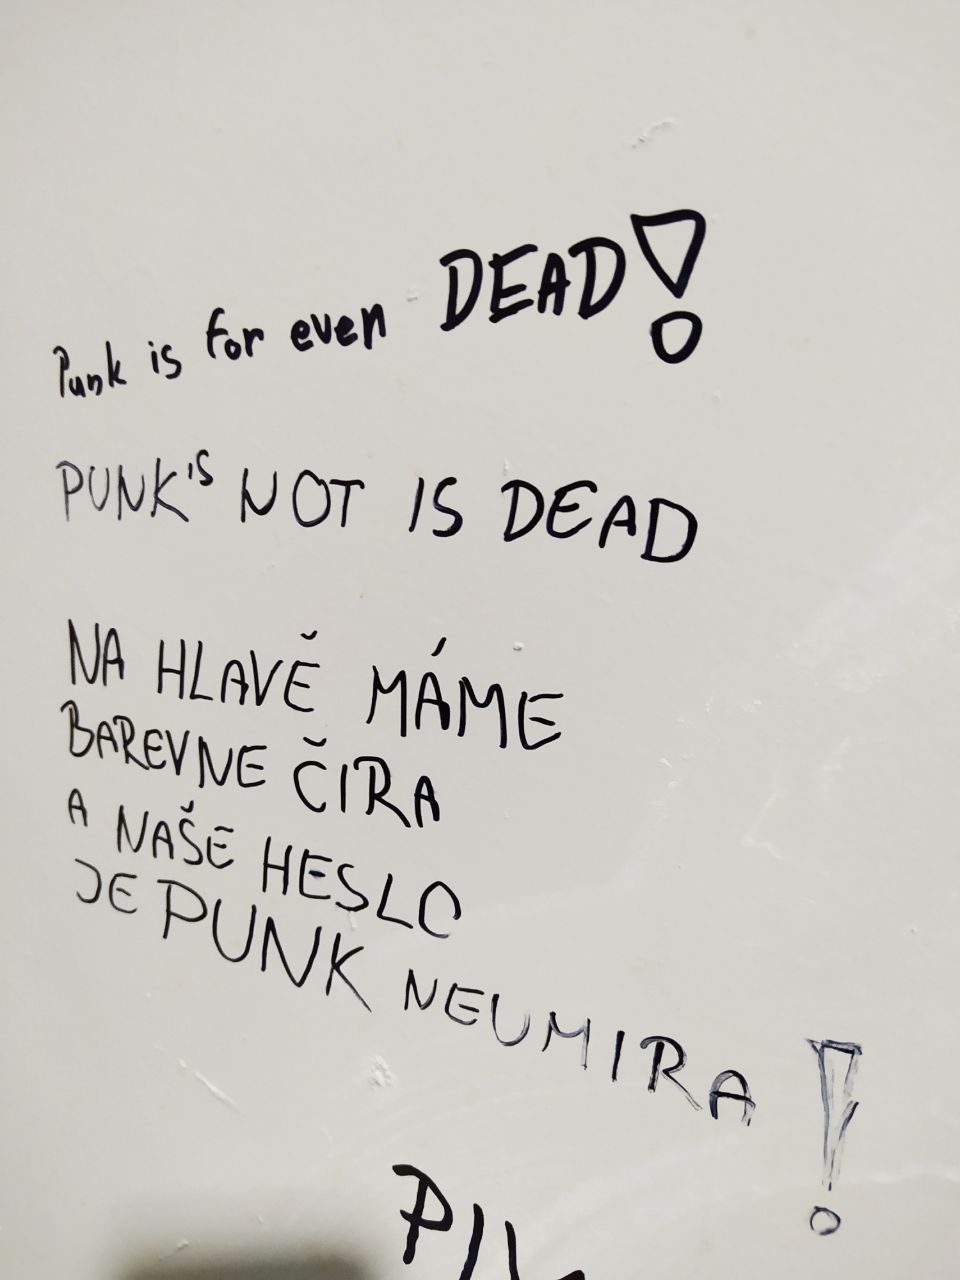 Punk is for even DEAD!
PUNK'IS NOT IS DEAD
NA HLAVĚ MÁME
BAREVNE ČIRA
A NAŠE HESLO
JE PUNK NEUMIRA!